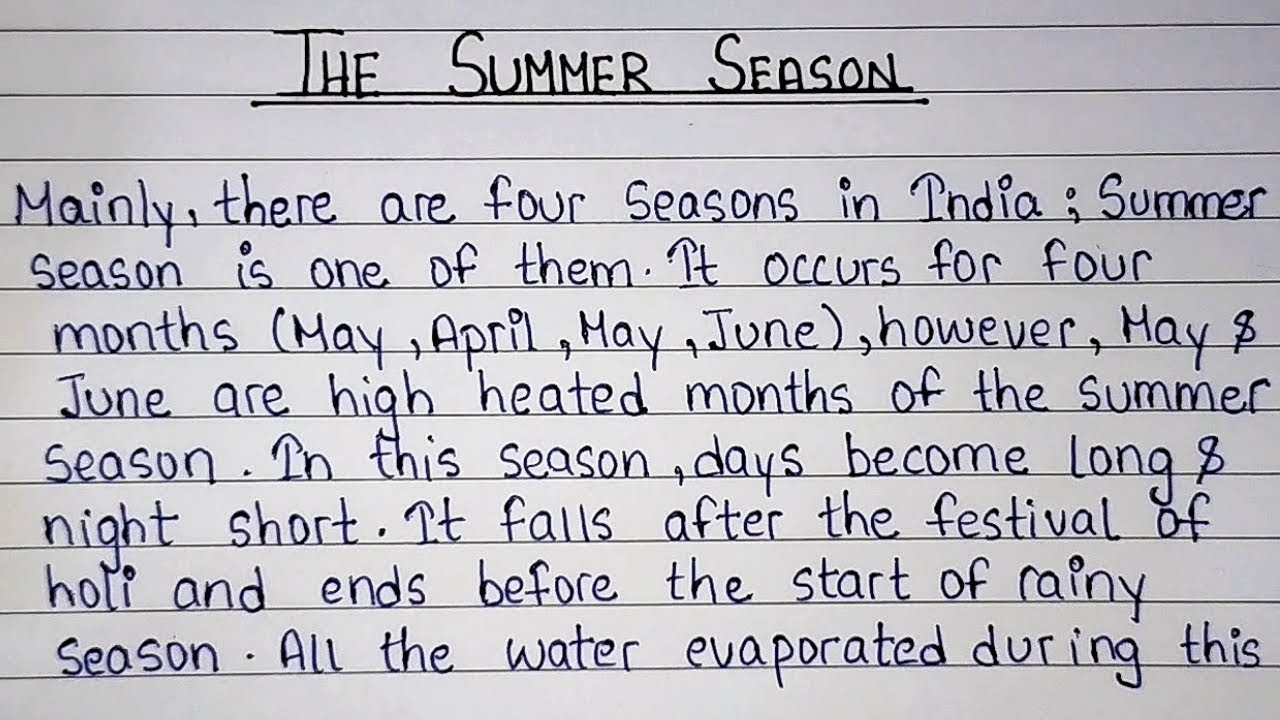 THE SUMMER SEASON
Mainly, there are four seasons in India ; Summer
season is one of them. It occurs for four
months (May, April, May, June), however, May &
June are high heated months of the summer
season. In this season, days become long &
night short. It falls after the festival of
holi and ends before the start of rainy
season. All the water evaporated during this